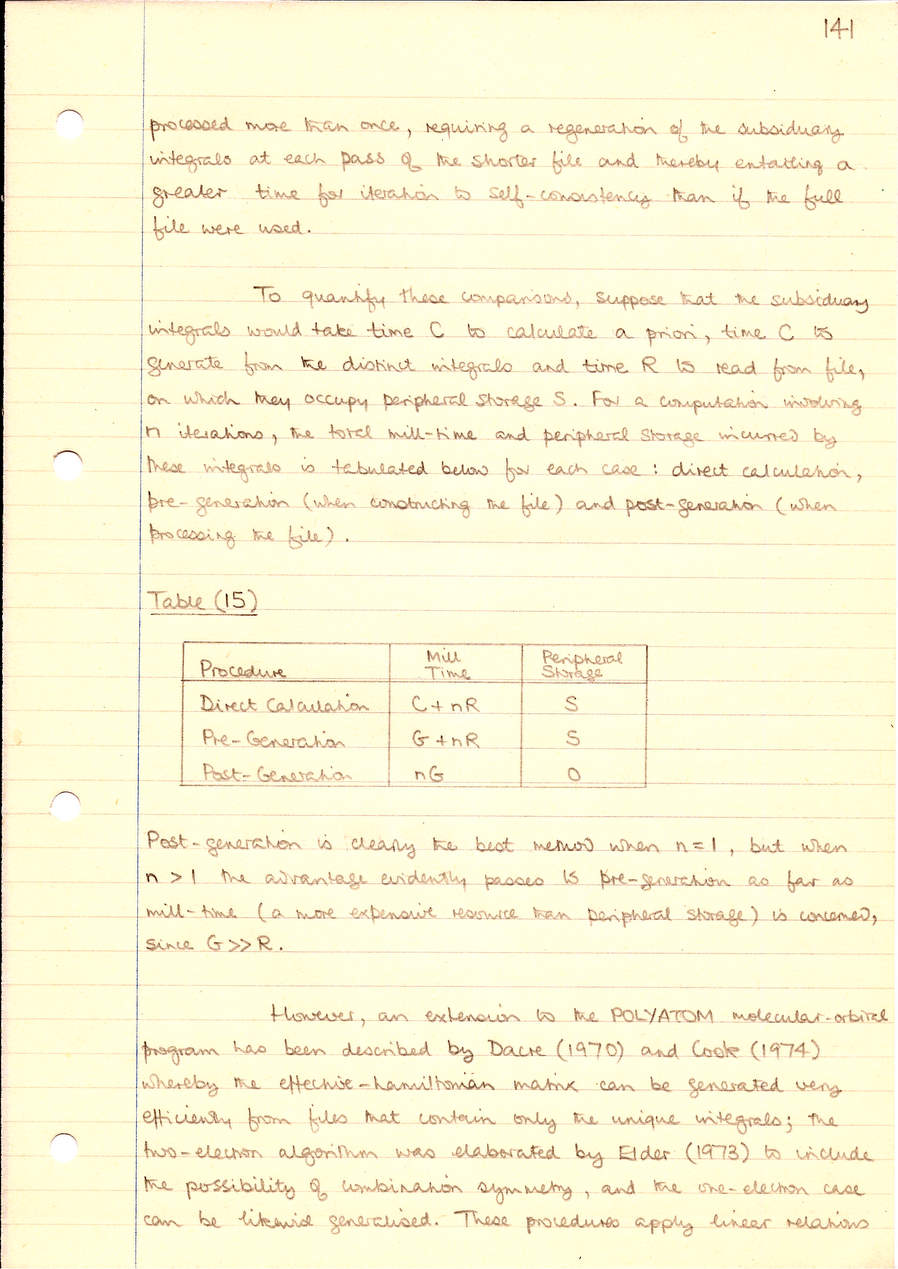 141
processed more than once, requiring a regeneration of the subsiduary
integrals at each pass of the shorter file and thereby entailing a
greater time for iteration to self-consistency than if the full
file were used.
To quantify these comparisons, suppose that the subsiduary
integrals would take time C to calculate a priori, time C to
generate from the distinct integrals and time R to read from file,
on which they occupy peripheral storage S. For a computation involving
n iterations, the total mill-time and peripheral storage incurred by
these integrals is tabulated below for each case: direct calculation,
pre-generation (when constructing the file) and post-generation (when
processing the file).
Table (15)
Procedure Mill Time Peripheral Storage
Direct Calculation C + nR S
Pre-Generation G + nR S
Post-Generation nG 0
Post-generation is clearly the best method when n = 1, but when
n > 1 the advantage evidently passes to pre-generation as far as
mill-time (a more expensive resource than peripheral storage) is concerned,
since G >> R.
However, an extension to the POLYATOM molecular-orbital
program has been described by Dacre (1970) and Cook (1974)
whereby the effective-hamiltonian matrix can be generated very
efficiently from files that contain only the unique integrals; the
two-electron algorithm was elaborated by Elder (1973) to include
the possibility of combination symmetry, and the one-electron case
can be likewise generalised. These procedures apply linear relations